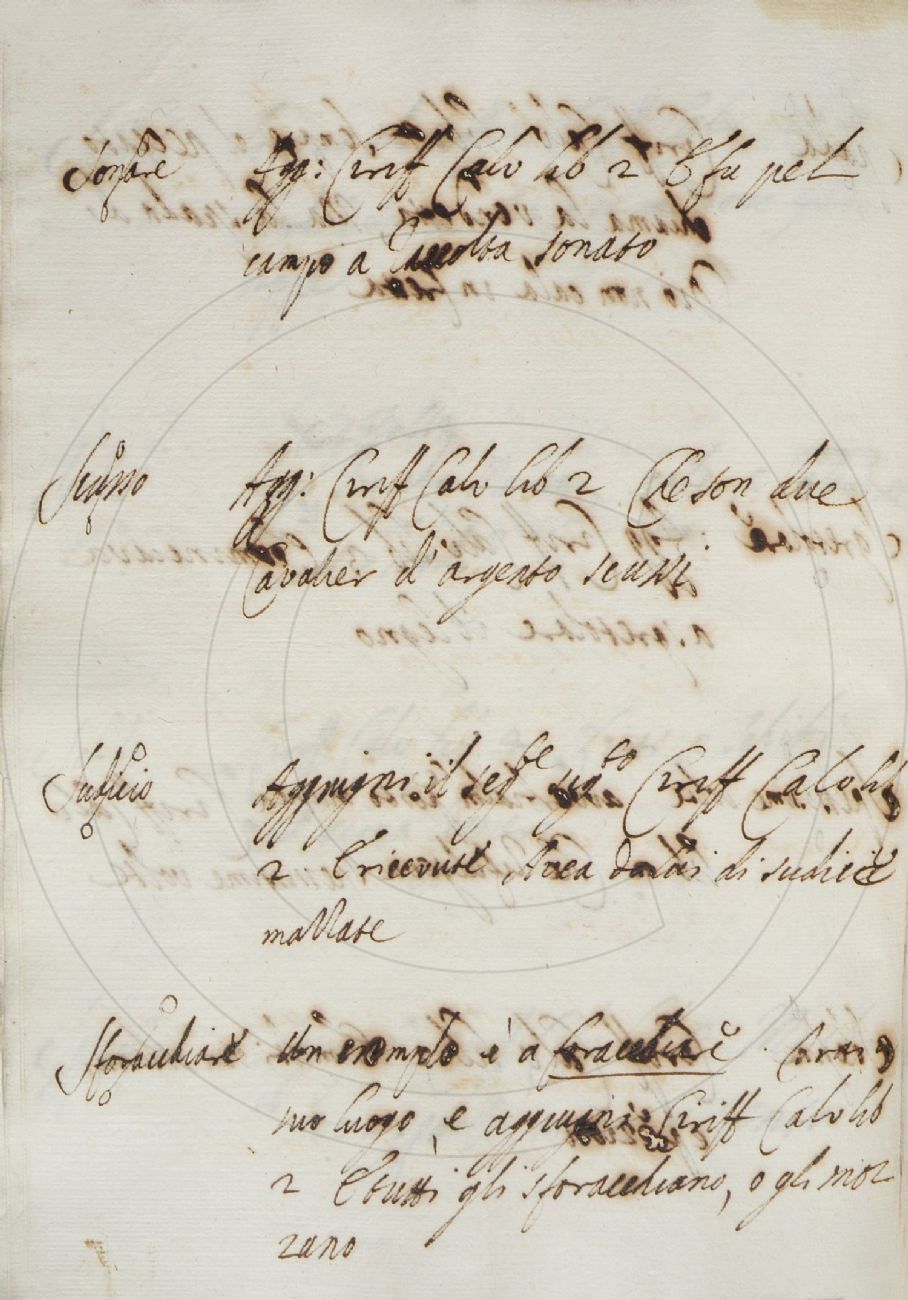 Sonare Agg: Ciriff Calv lib 2 E fu pel
campo a raccolta sonato
Scusso Agg: Ciriff Calv lib 2 Che son due
Cavalier d'argento scussi
Sudicio Aggiugni il segte Ciriff Calv lib
2 E ricevute avea di sudicie
mazzate
Sforacchiare Un exemplo è a foracchiare
suo luogo, e aggiugni Ciriff Calv lib
2 E tutti gli sforacchiano, o gli moz
zano